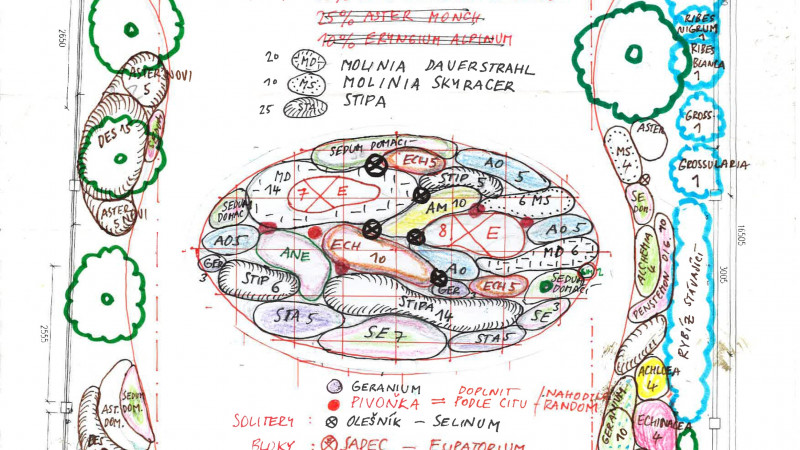 25% ASTER MÖNCH
10% ERYNGIUM ALPINUM
20 MD MOLINIA DAUERSTRAHL
10 MS MOLINIA SKYRACER
25 STA STIPA
2650
ASTER NOVI
5
DES 15
ASTER NOVI
5
2555
SEDUM
DOM.
AST.
DOM.
DES
SEDUM DOMÁCÍ
ECH 5
AO
5
MD
14
7 E
STIP 5
6 MS
SEDUM
DOMÁC
AM 10
AO 5
8 E
AO 5
ANE
ECH
10
MD 6
GER
3
STIP 6
AO
GER
ECH 5
SEDUM
DOMÁCÍ
STIPA 14
SE 3
STA 5
SE 7
STA 5
GERANIUM
PIVOŇKA = DOPLNIT PODLE CITU / NAHODILE RANDOM
SOLITERY : OLEŠNÍK - SELINUM
BLOKY : SADEC - EUPATORIUM
RIBES
NIGRUM
1
RIBES
BLANCA
1
GROSS
1
GROSSULARIA
1
ASTER
MS
4
SE
DOM.
ALCHEMI
4
PENSTEMON DIG. 10
RYBÍZ STÁVAJÍCÍ
16505
3005
ACHILLEA
4
GERANIUM
10
ECHINACEA
4